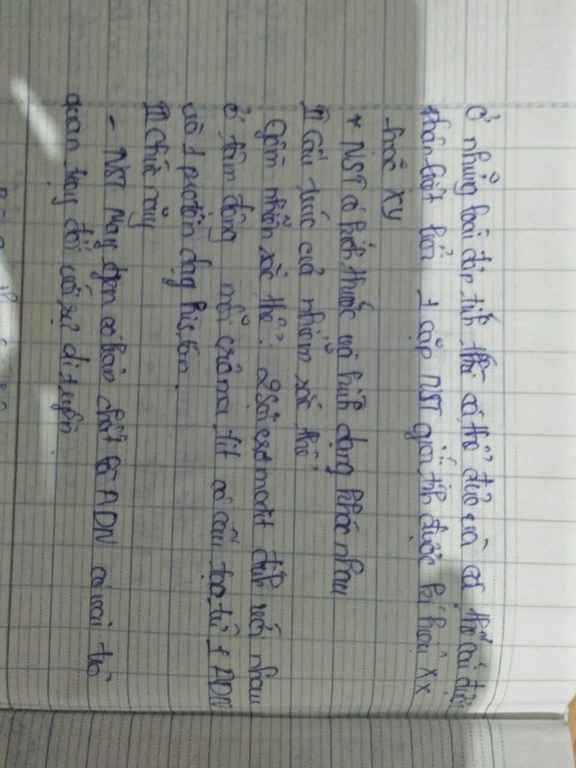 Ở những loài đơn tính thì cá thể đực và cá thể cái được
phân biệt bởi 1 cặp NST giới tính được kí hiệu XX
hoặc XY
+ NST có kích thước và hình dạng khác nhau
II Cấu trúc của nhiễm sắc thể
Gồm nhiễm sắc thể: 2 sợi crômatit đính với nhau
ở tâm động mỗi crômatit có cấu tạo từ 1 ADN
và 1 prôtêin dạng histôn
III Chức năng
- NST mang gen có bản chất là ADN có vai trò
quan trọng đối với sự di truyền